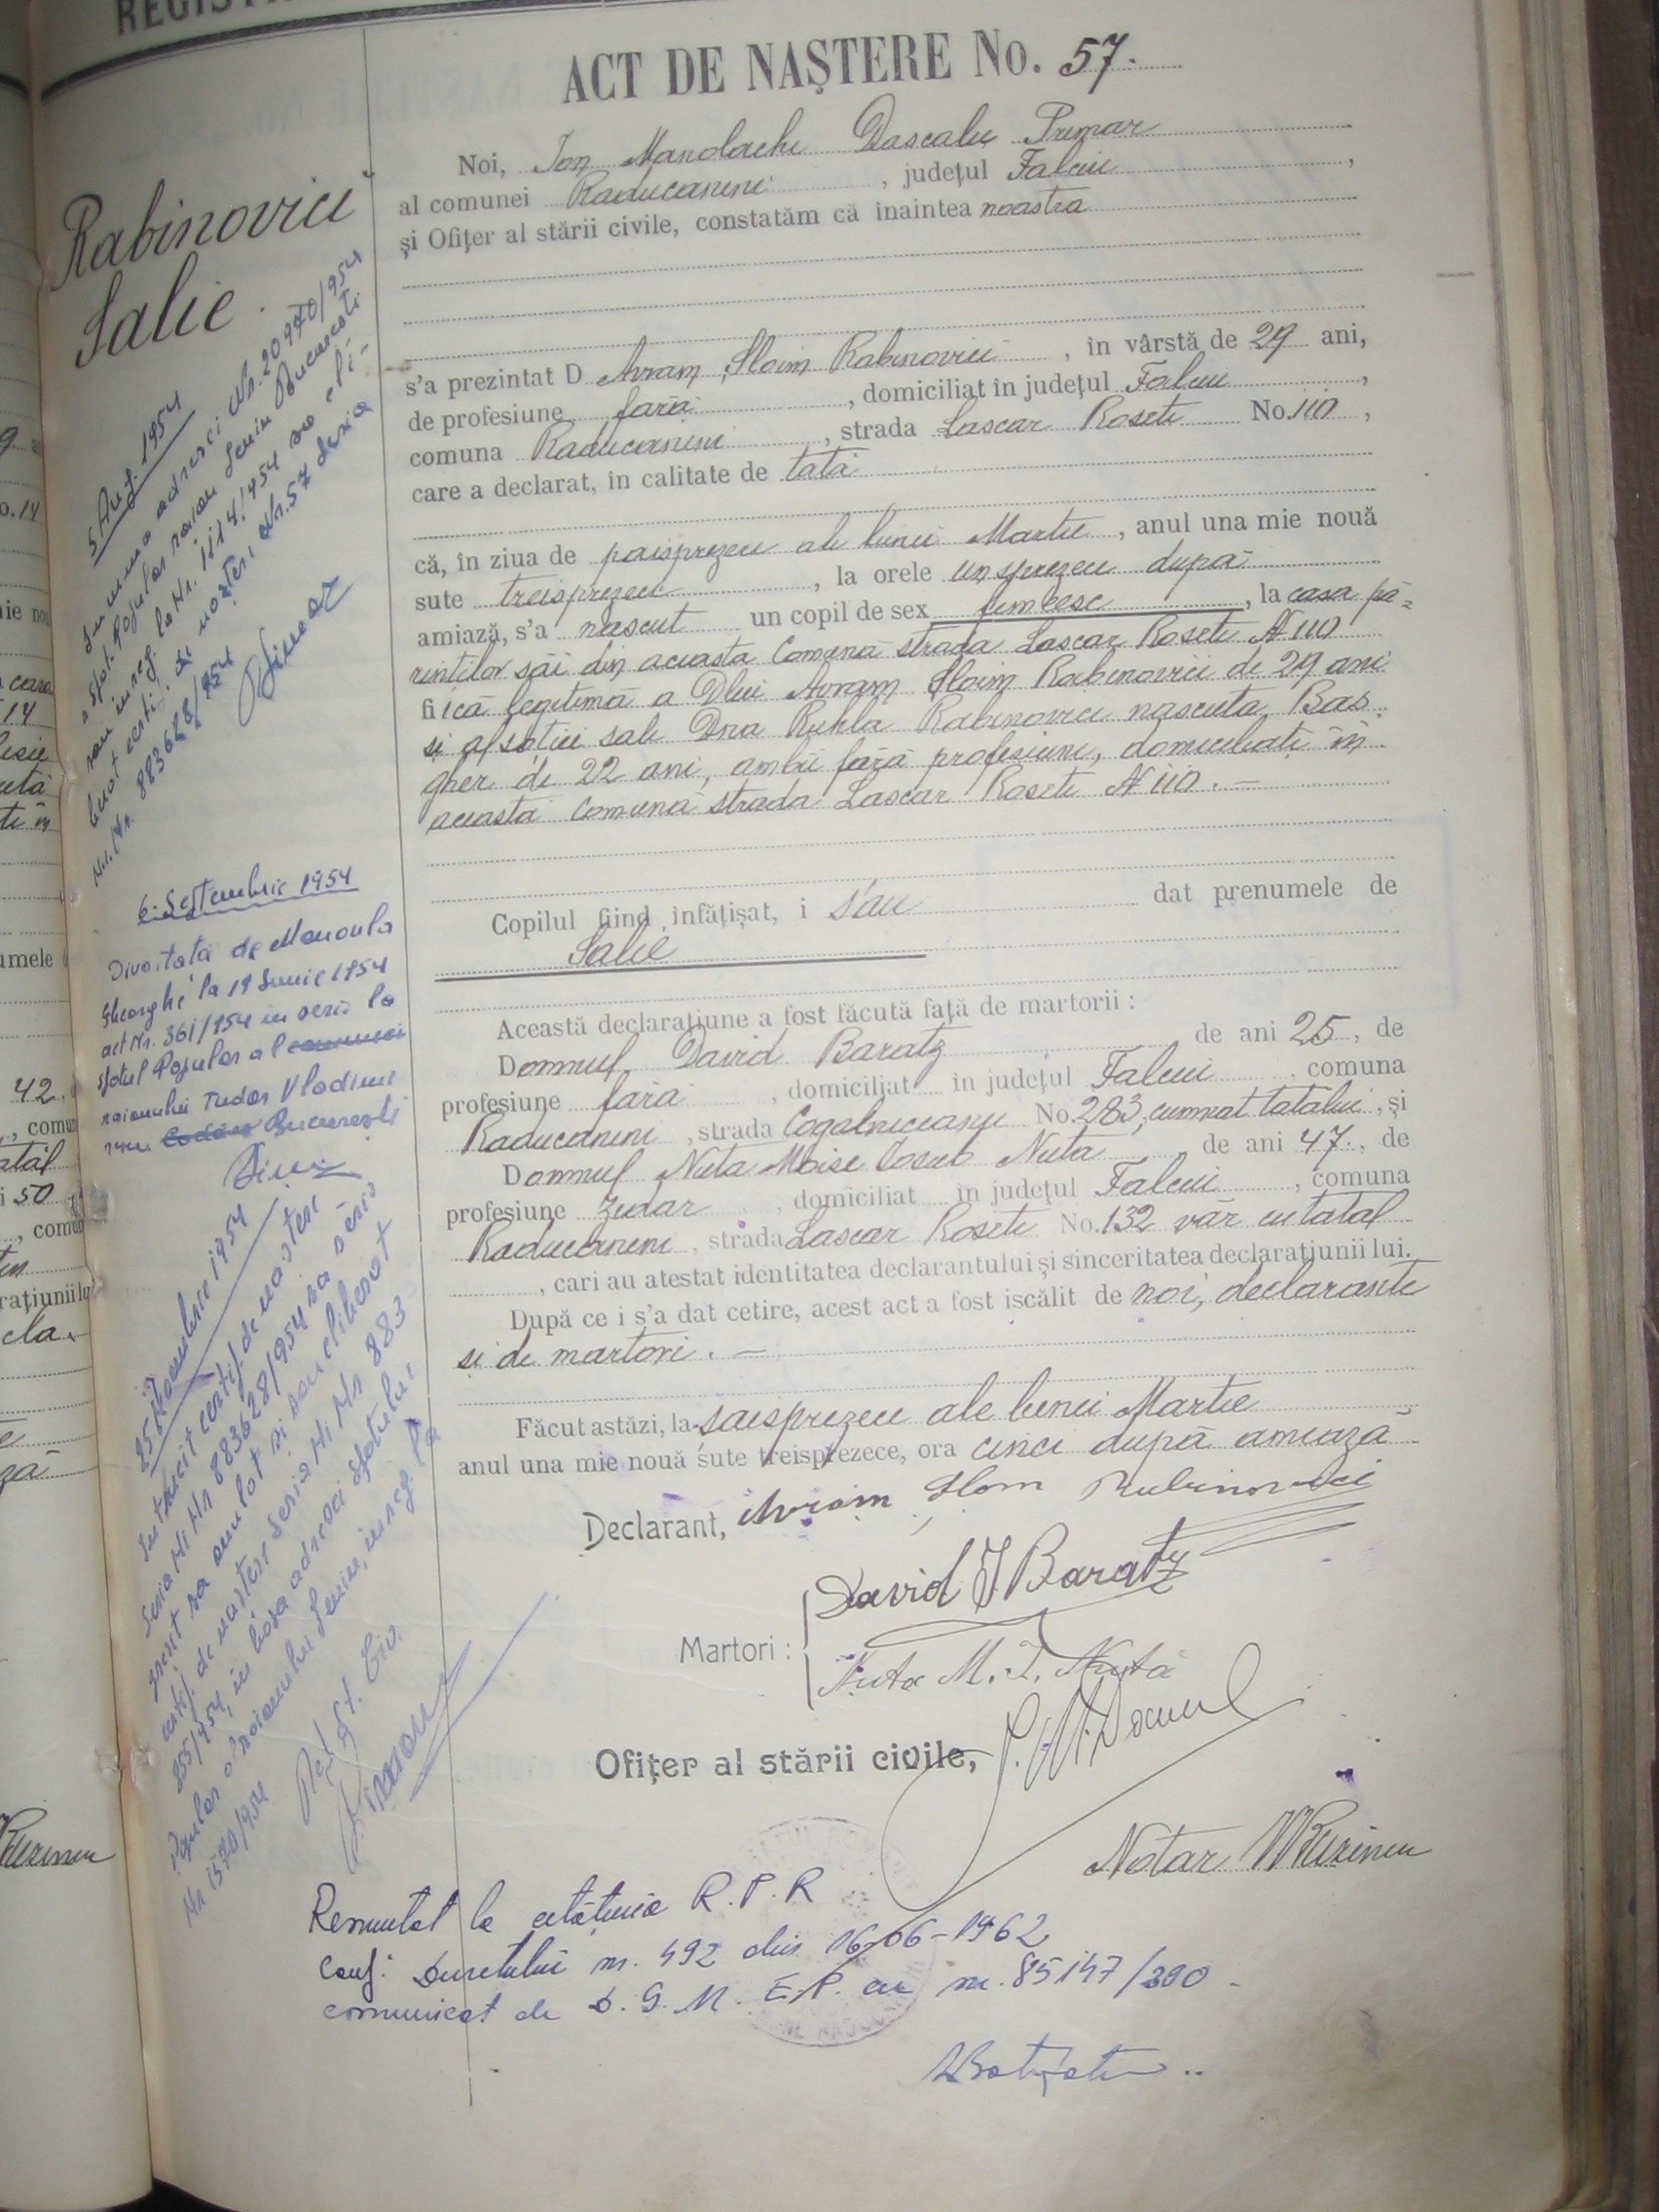 ACT DE NAŞTERE No. 57.
Noi, Ion Manolache Dascalu Primar
al comunei Raducaneni, judeţul Falciu,
şi Ofiţer al stării civile, constatăm că înaintea noastra
s'a prezintat D Avram Sloim Rabinovici, în vârstă de 29 ani,
de profesiune fără, domiciliat în judeţul Falciu,
comuna Raducaneni, strada Lascar Roseti No. 110,
care a declarat, în calitate de tată
că, în ziua de paisprezeci ale lunei Martie, anul una mie nouă
sute treisprezeci, la orele unsprezeci după
amiază, s'a nascut un copil de sex femeesc, la casa pă=
rintilor săi din aceasta Comună strada Lascar Roseti N 110
fiică legitimă a Dlui Avram Sloim Rabinovici de 29 ani
si a soţiei sale Dna Ruhla Rabinovici nascută Bas
gher de 22 ani, ambii fără profesiune, domiciliaţi în
aceasta Comună strada Lascar Roseti N 110. —
Copilul fiind înfăţişat, i s'au dat prenumele de
Salie
Această declaraţiune a fost făcută faţă de martorii :
Domnul David Baratz de ani 25, de
profesiune fără, domiciliat în judeţul Falciu, comuna
Raducaneni, strada Cogalniceanu No. 283, cumnat tatalui, şi
Domnul Nuta Moise Iosub Nuta de ani 47., de
profesiune zidar, domiciliat în judeţul Falciu, comuna
Raducaneni, strada Lascar Roseti No. 132 văr cu tatăl
, cari au atestat identitatea declarantului şi sinceritatea declaraţiunii lui.
După ce i s'a dat cetire, acest act a fost iscălit de noi, declarante
si de martori. —
Făcut astăzi, la saisprezeci ale lunei Martie
anul una mie nouă sute treisprezece, ora cinci după amează
Declarant, Avram Slom Rubinovici
David I Baratz
Martori :
Nuta M. I. Nuta
Ofiţer al stării civile,
Notar
Renuntat la cetăţenia R.P.R
Conf. Decretului nr. 492 din 16-06-1962
comunicat de D.G.M. E.P. cu nr. 85147/390 -
Rabinovici
Salie.
5 Aug. 1954
In urma adresei Nr. 20970/954
a Sfat. Popular raion Lenin Bucuresti
sau inreg. la Nr. 1114/954 s-a eli-
berat certif. de nasteri Nr. 57 seria
Nr. 883628/954
6. Septembrie 1954
Divortată de Manoula
Gheorghe la 19 Iunie 1954
act Nr. 361/954 in scris la
Sfatul Popular al comunei
raionului Tudor Vladimi
Bucureşti
25 Noembrie 1954
Intrucit certif. de nasteri
Seria Nr 883628/954 sa scris
gresit sa anulat si sau eliberat
certif. de nasteri seria Nr 883
255/954, in baza adresei Sfatului
Popular al raionului Lenin, inreg. la
Nr 1570/954